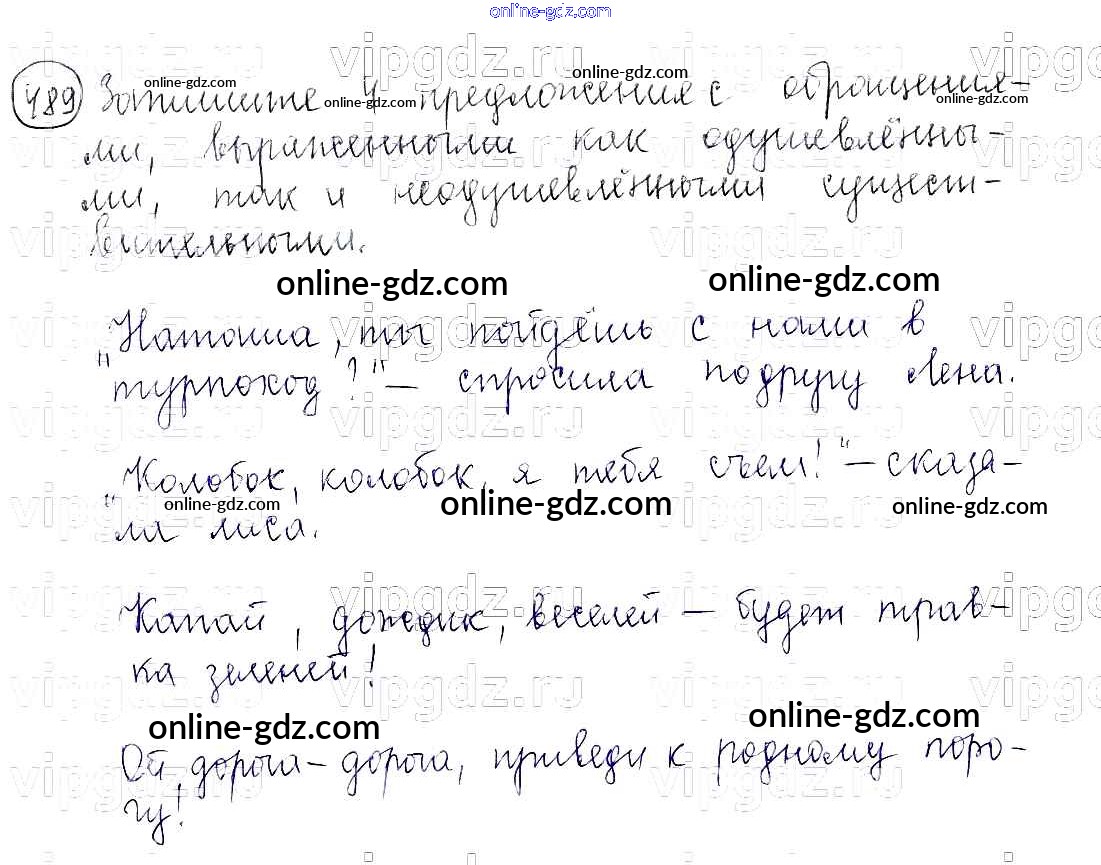 online-gdz.com
489 Запишите 4 предложения с обращения-
ми, выраженными как одушевлённы-
ми, так и неодушевлёнными сущест-
вительными.
online-gdz.com online-gdz.com
„Наташа, ты пойдёшь с нами в
турпоход?“ — спросила подругу Лена.
„Колобок, колобок, я тебя съем!“ — сказа-
online-gdz.com online-gdz.com online-gdz.com
ла лиса.
Капай, дождик, веселей — будет трав-
ка зеленей!
online-gdz.com online-gdz.com
Ой дорога-дорога, приведи к родному поро-
гу!